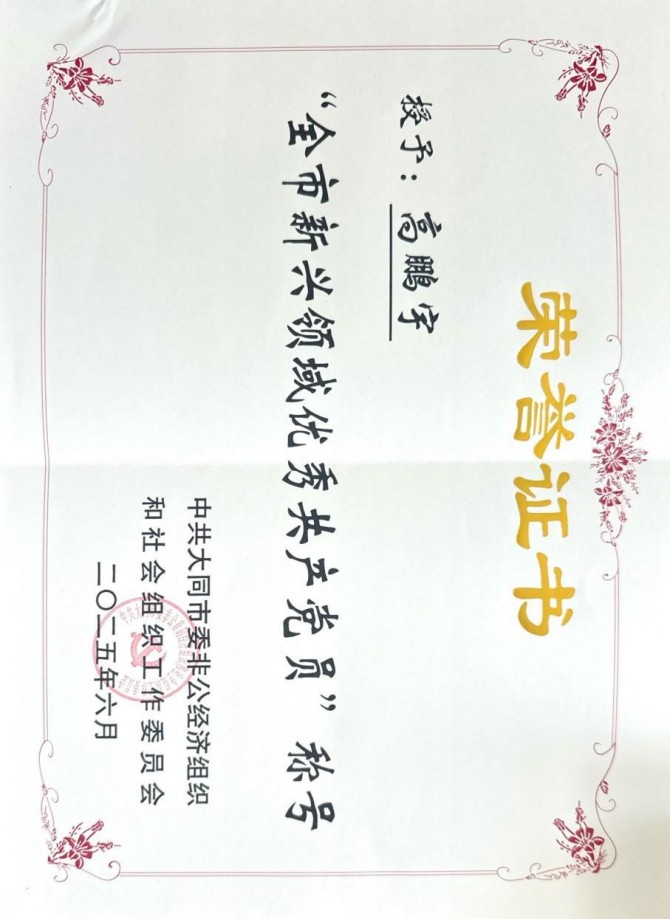 荣誉证书
授予：高鹏宇
“全市新兴领域优秀共产党员”称号
中共大同市委非公经济组织
和社会组织工作委员会
二〇二五年六月